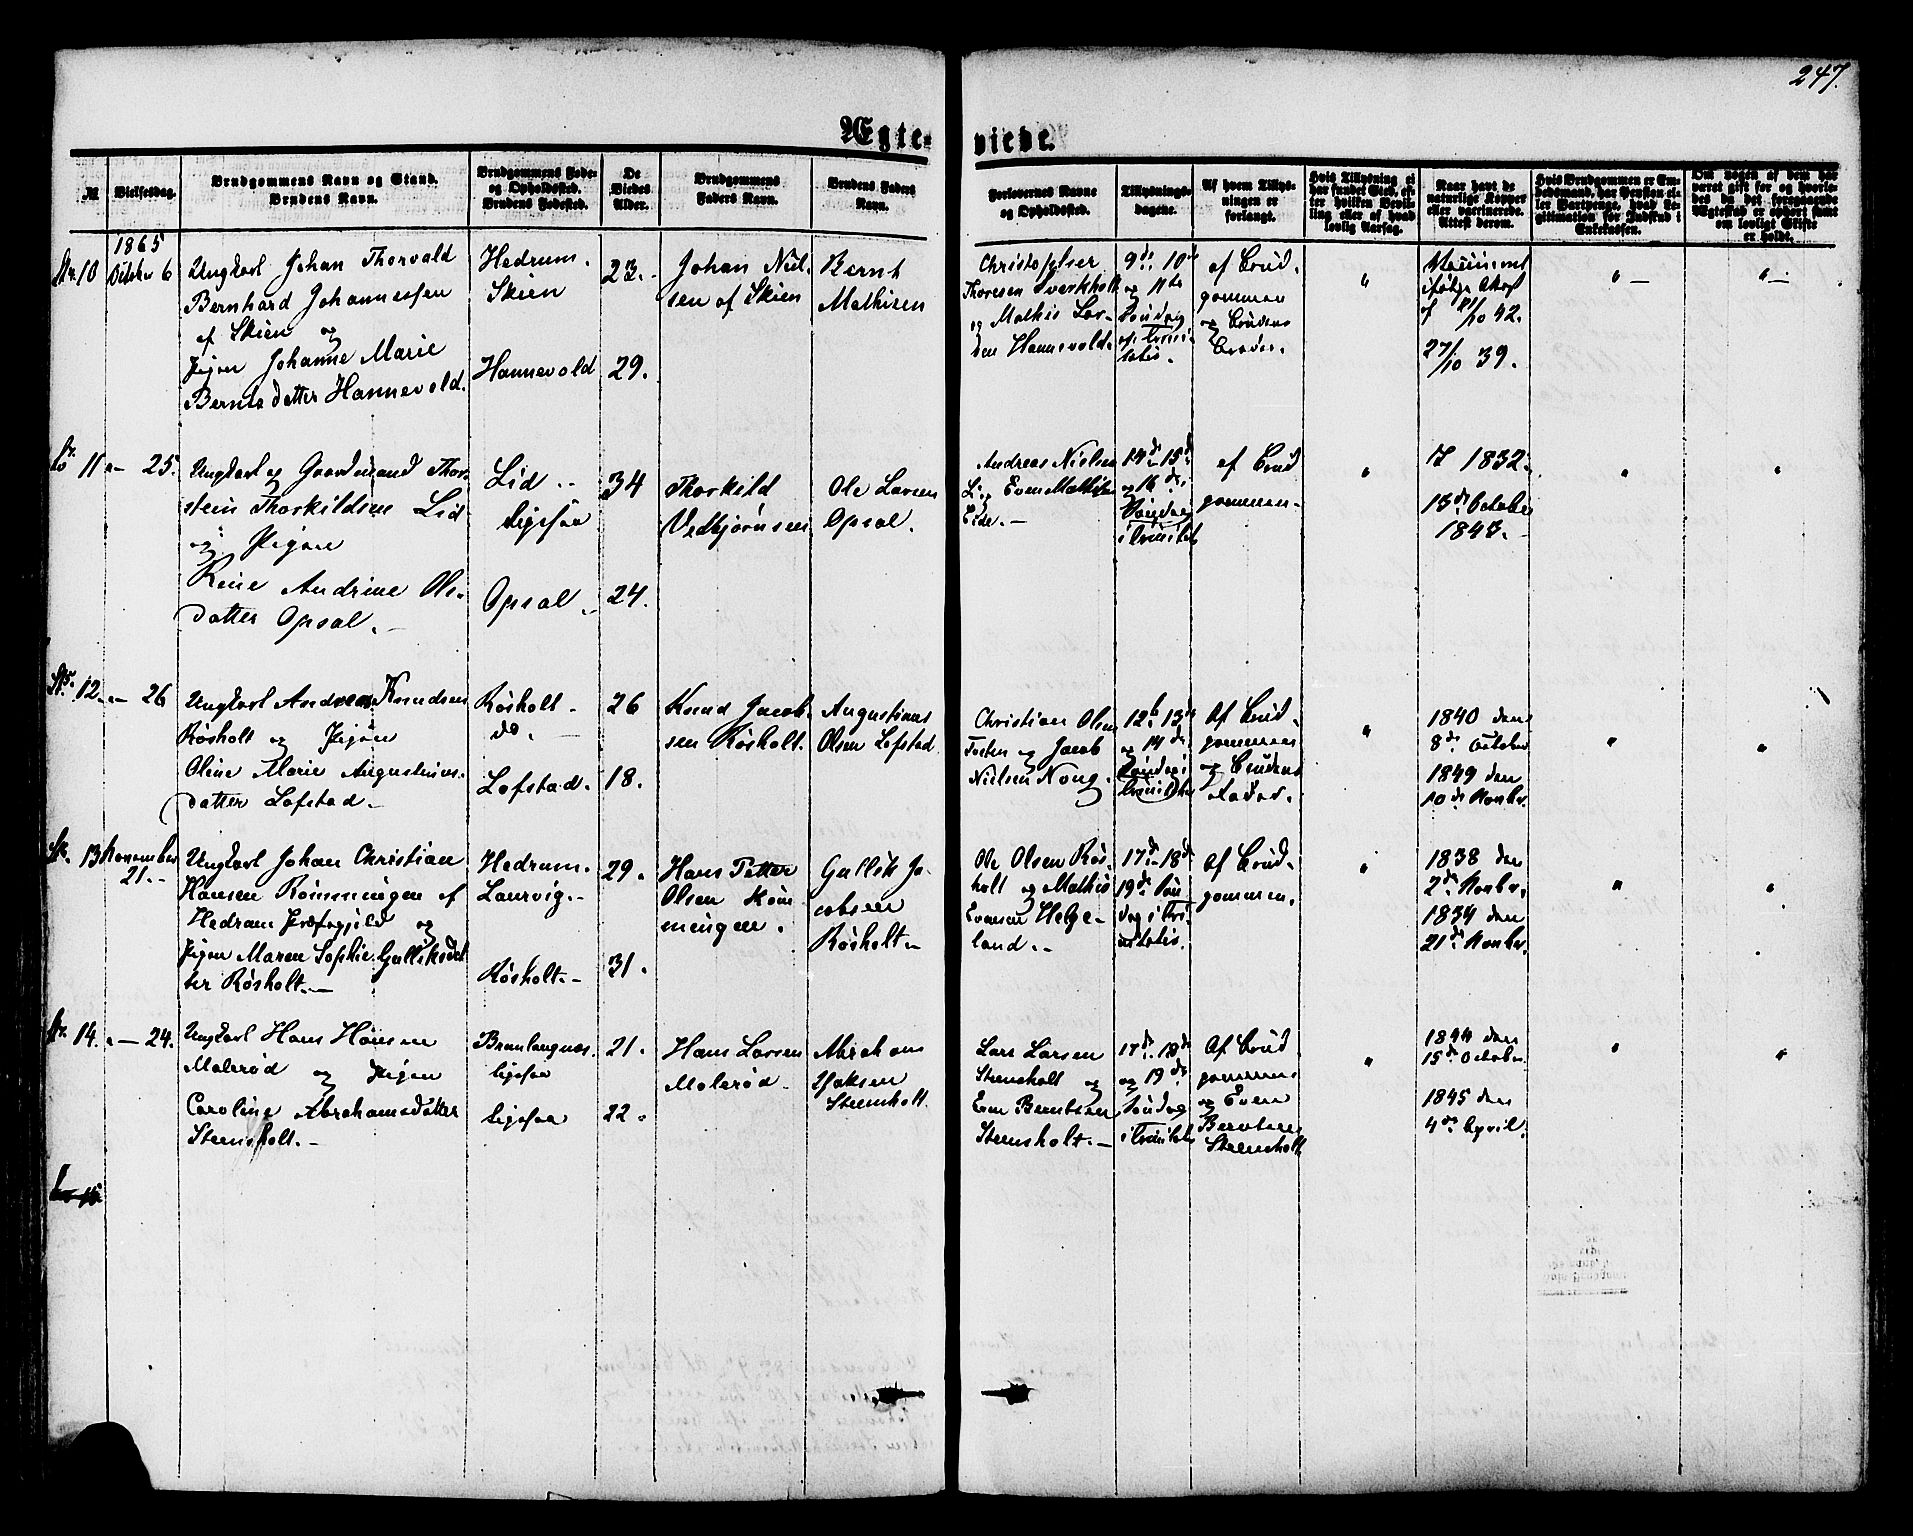 247.
Ægte-viede.
№
Vielsesdag.
Brudgommens Navn og Stand.
Brudens Navn.
Brudgommens Føde- og Opholdssted.
Brudens Fødested.
De Viedes Alder.
Brudgommens Faders Navn.
Brudens Faders Navn.
Forlovernes Navne og Opholdssted.
Tillysnings-dagene.
Af hvem Tillysningen er forlangt.
Hvis Tillysning ei har fundet Sted, efter hvilken Bevilling eller af hvad lovlig Aarsag.
Naar havt de naturlige Kopper eller vaccinerede. Attest derom.
Hvis Brudgommen er Embedsmand, har Pension eller Vartpenge, hvad Legitimation for Indskud i Enkekassen.
Om nogen af dem har været gift før og hvorledes da det foregaaende Ægteskab er ophørt samt om lovligt Skifte er holdt.
1865
10
Octobr 6
Ungkarl Johan Thorvald
Bernhard Johannessen
af Skien og
Pigen Johanne Marie
Berntsdatter Hannevold.
Hedrum.
Skien
Hannevold
23.
29.
Johan Niel-
sen af Skien
Bernt
Mathisen
Christopher
Thoresen Sverkholt
og Mathis Lar-
sen Hannevold.
9de 10de
og 11te
Søndag
ef. Trini-
tatis.
af Brud-
gommen
og Brudens
Broder.
"
Vaccineret
ifølge Attest
af 21/10 42.
27/10 39.
" —
" —
11
" — 25.
Ungkarl og Gaardmand Thor-
stein Thorkildsen Lid
og Pigen
Rine Andrine Ols-
datter Opsal. —
Lid
ligesaa
Opsal.
34
24.
Thorkild
Vedbjørnsen
Ole Larsen
Opsal.
Andreas Nielsen
Li og Even Mathisen
Eide. —
14de 15de
og 16de
Søndag
i Trinitat
af Brud
gommen.
"
1832.
13de October
1847.
"
"
12.
" — 26
Ungkarl Andreas Knudsen
Røsholt og Pigen
Oline Marie Augustinus-
datter Løfstad. —
Røsholt
do.
Løfstad.
26
18.
Knud Jacob-
sen Røsholt.
Augustinus
Olsen Løfstad
Christian Olsen
Tosten og Jacob
Nielsen Nong.
12te 13de
og 14de
Søndag i
Trinitatis
Af Brud-
gommen
og Brudens
Fader.
"
1840 den
8de October
1849 den
10de Novbr.
"
"
13
November
21. —
Ungkarl Johan Christian
Hansen Rømmingen af
Hedrum Præstegjeld og
Pigen Maren Sophie Gulliksdat
ter Røsholt. —
Hedrum.
Laurvig.
Røsholt. —
29.
31.
Hans Petter
Olsen Røm-
mingen.
Gullik Ja-
cobsen
Røsholt. —
Ole Olsen Røs-
holt og Mathis
Evensen Helge-
land. —
17de 18de
19de Søn
dag i Tri-
nitatis.
Af Brud-
gommen.
"
1838 den
2de Novbr.
1834 den
21de Novbr.
"
"
14.
" — 24.
Ungkarl Hans Hansen
Molerød og Pigen
Caroline Abrahamsdatter
Steensholt. —
Brunlangnæs.
ligesaa
ligesaa
21.
22.
Hans Larsen
Molerød.
Abraham
Isaksen
Steensholt.
Lars Larsen
Steensholt og
Even Berntsen
Steensholt. —
17de 18de
og 19de
Søndag
i Trinitatis
Af Brud
gommen
og Even
Berntsen
Steensholt
"
1844 den
15de October
1845 den
4de April.
"
"